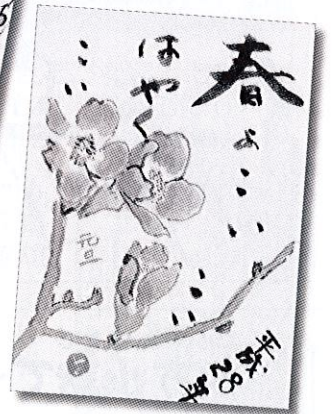 春よこい
はやく
こい
元旦
平成28年